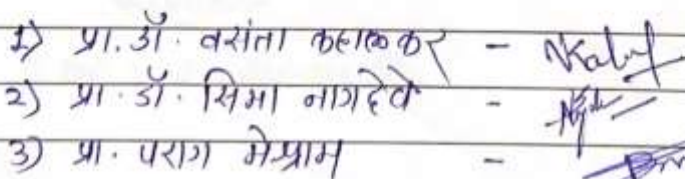 १) प्रा. डॉ. वसंता कहालकर -
२) प्रा. डॉ. सिमा नागदेवे -
३) प्रा. पराग मेश्राम -